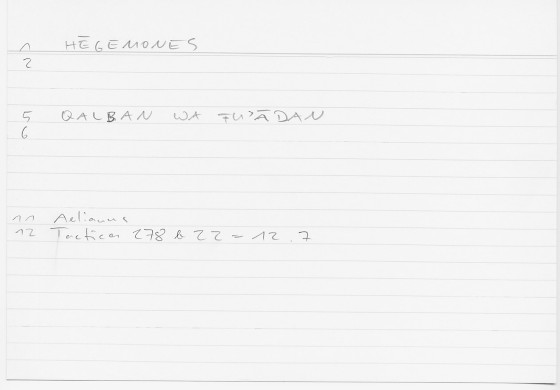 1 HĒGEMONES
2
5 QALBAN WA FU'ĀDAN
6
11 Aelianus
12 Tactica 278 b 22 = 12.7